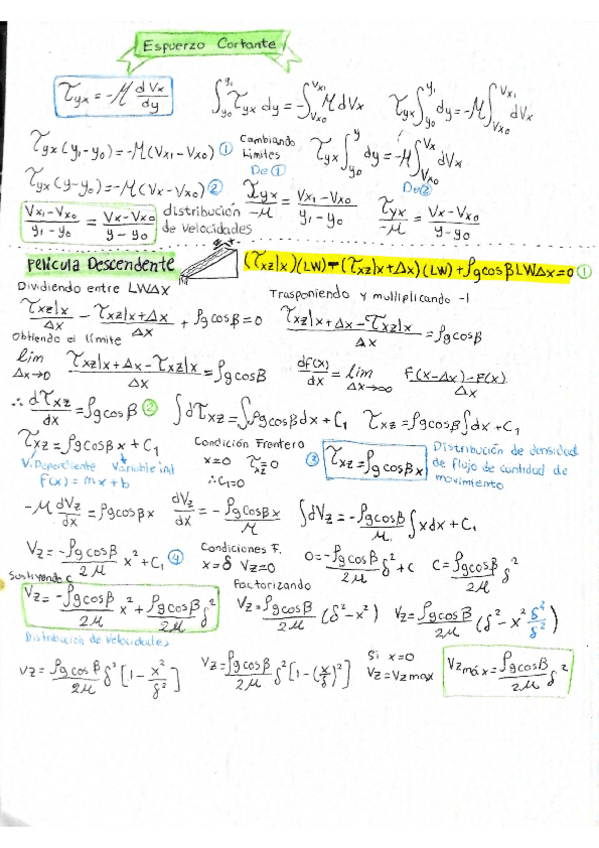 Esfuerzo Cortante
τyx = -μ dVx/dy   ∫y₀^y₁ τyx dy = -∫Vx₀^Vx₁ μ dVx   τyx ∫y₀^y₁ dy = -μ ∫Vx₀^Vx₁ dVx
τyx (y₁-y₀) = -μ (Vx₁-Vx₀) ① Cambiando Limites   τyx ∫y₀^y dy = -μ ∫Vx₀^Vx dVx
τyx (y-y₀) = -μ (Vx-Vx₀) ②   De ① τyx/-μ = (Vx₁-Vx₀)/(y₁-y₀)   De ② τyx/-μ = (Vx-Vx₀)/(y-y₀)
(Vx₁-Vx₀)/(y₁-y₀) = (Vx-Vx₀)/(y-y₀) distribución de velocidades
Película Descendente   (τxz|x)(LW) - (τxz|x+Δx)(LW) + ρg cos β LWΔx = 0 ①
Dividiendo entre LWΔX   Trasponiendo y multiplicando -1
τxz|x/Δx - τxz|x+Δx/Δx + ρg cos β = 0   (τxz|x+Δx - τxz|x)/Δx = ρg cos β
Obtiendo el límite
lim Δx→0 (τxz|x+Δx - τxz|x)/Δx = ρg cos β   df(x)/dx = lim Δx→∞ (F(x-Δx)-F(x))/Δx
∴ dτxz/dx = ρg cos β ②   ∫dτxz = ∫ρg cos β dx + C₁   τxz = ρg cos β ∫dx + C₁
τxz = ρg cos β x + C₁   Condición Frontero   x=0 τxz=0   ∴C₁=0   ③ τxz = ρg cos β x   Distribución de densidad de flujo de cantidad de movimiento
V. Dependiente Variable ind
F(x) = mx + b
-μ dVz/dx = ρg cos β x   dVz/dx = -ρg cos β x/μ   ∫dVz = -ρg cos β/μ ∫x dx + C₁
Vz = -ρg cos β/2μ x² + C₁ ④   Condiciones F. x=δ Vz=0   0 = -ρg cos β/2μ δ² + C   C = ρg cos β/2μ δ²
Sustiyendo C   Factorizando
Vz = -ρg cos β/2μ x² + ρg cos β/2μ δ²   Vz = ρg cos β/2μ (δ²-x²)   Vz = ρg cos β/2μ (δ²-x² δ²/δ²)
Distribución de Velocidades
Vz = ρg cos β/2μ δ² [1 - x²/δ²]   Vz = ρg cos β/2μ δ² [1-(x/δ)²]   Si x=0 Vz=Vz max   Vz máx = ρg cos β/2μ δ²